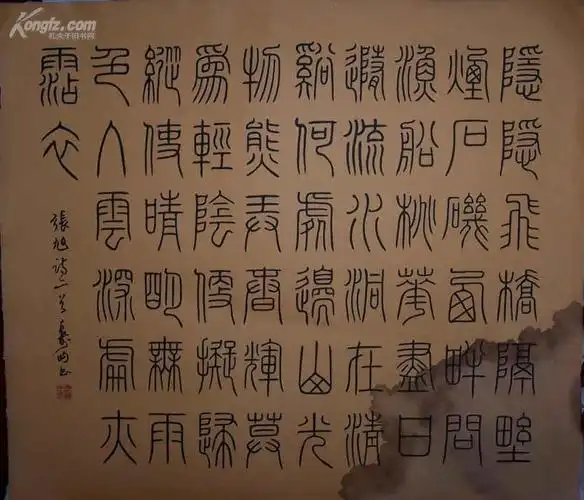 Kongfz.com
孔夫子旧书网
隱隱飛橋隔野
煙石磯西畔問
漁船桃華盡日
隨流水洞在清
谿何處邊山光
物態弄春輝莫
為輕陰便擬歸
縱使晴明無雨
色入雲深處亦
霑衣
張旭詩二首